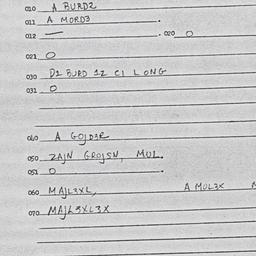 010 A BURD2
011 A MORD3 .
012 — . 020 O
021 O
030 D1 BURD 12 C1 LONG
031 O
040 A GOJD3R
050 ZAJN GROJSN, MUL.
051 O .
060 MAJL3XL, A MUL3X
070 MAJL3XL3X